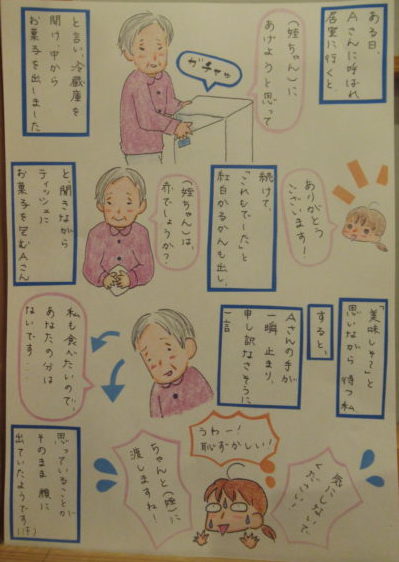 ある日、
Aさんに呼ばれ
居室に行くと
(姪ちゃん)に
あげようと思って
ガチャッ
と言い、冷蔵庫を
開け、中から
お菓子を出しました
ありがとう
ございます!
続けて、
「これもでーた」と
紅白かるかんも出し、
(姪ちゃん)は、
赤でしょうか?
と聞きながら
ティッシュに
お菓子を包むAさん
「美味しそ〜」と
思いながら待つ私
すると、
Aさんの手が
一瞬止まり、
申し訳なさそうに
一言
私も食べたいので、
あなたの分は
ないです…
気にしないで
ください!
うわー!
恥ずかしい!
ちゃんと(姪)に
渡しますね!
思っていることが
そのまま顔に
出ていたようです